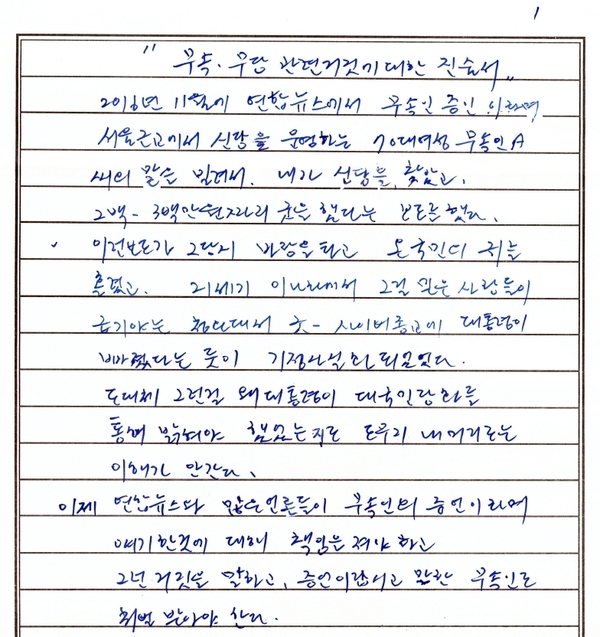 1
"무속·무당 관련거짓기 대한 진술서"
2016년 11월에 연합뉴스에서 무속인 증인이라며
서울근교에서 신당을 운영하는 70대여성 무속인A
씨의 말을 빌려서. 내가 신당을 찾았고.
2백-3백만원짜리 굿을 했다는 보도를 했다.
이런보도가 그당시 바람을 타고 온국민이 저를
흔겼고. 21세기 이나라에서 그걸 믿은 사람들이
급기야는 청와대서 굿-사이버종교에 대통령이
빠졌다는 듯이 기정사실화 되었었다.
도대체 그런걸 왜 대통령이 대국민담화를
통해 밝혀야 했었는지도 도무지 내머리로는
이해가 안간다.
이제 연합뉴스와 많은언론들이 무속인의 증언이라며
얘기한것에 대해 책임을 져야 하고
그런 거짓을 말하고, 증언이랍시고 말한 무속인도
처벌 받아야 한다.